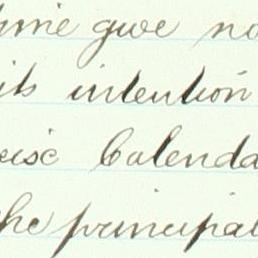 time give no
its intention
cise Calenda
the principal